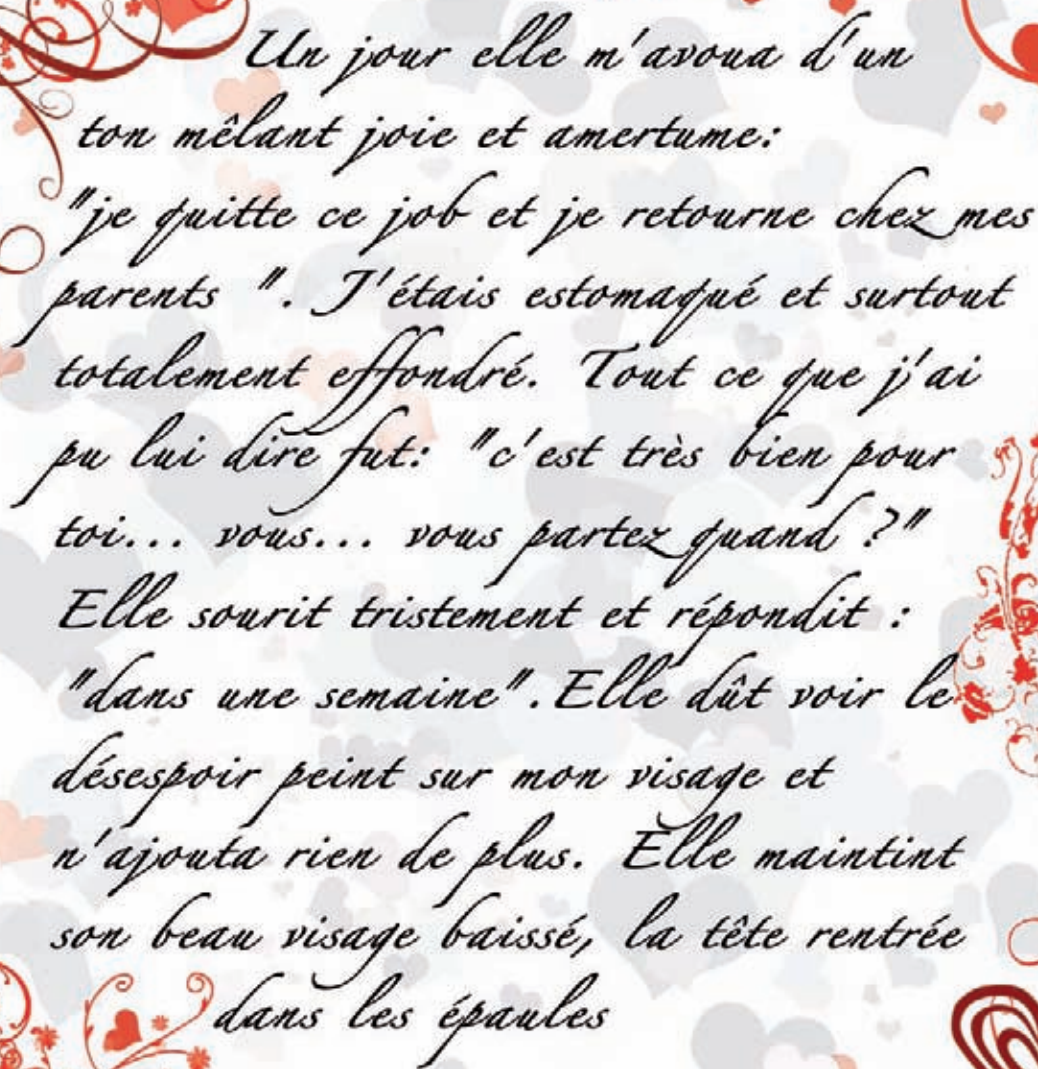 Un jour elle m'avoua d'un
ton mêlant joie et amertume:
"je quitte ce job et je retourne chez mes
parents ". J'étais estomaqué et surtout
totalement effondré. Tout ce que j'ai
pu lui dire fut: "c'est très bien pour
toi... vous... vous partez quand ?"
Elle sourit tristement et répondit :
"dans une semaine". Elle dût voir le
désespoir peint sur mon visage et
n'ajouta rien de plus. Elle maintint
son beau visage baissé, la tête rentrée
dans les épaules